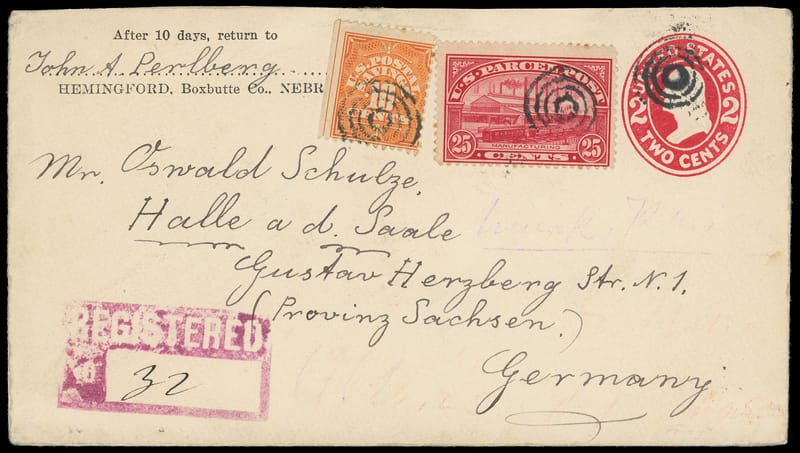 After 10 days, return to
John A. Perlberg
HEMINGFORD, Boxbutte Co., NEBR
U.S. POSTAL
SAVINGS
10
CENTS
U.S. PARCEL POST
25 25
MANUFACTURING
CENTS
UNITED STATES
2 2
TWO CENTS
Mr. Oswald Schulze,
Halle a d. Saale
Gustav Herzberg Str. N. 1.
(Provinz Sachsen.)
Germany
REGISTERED
No
32